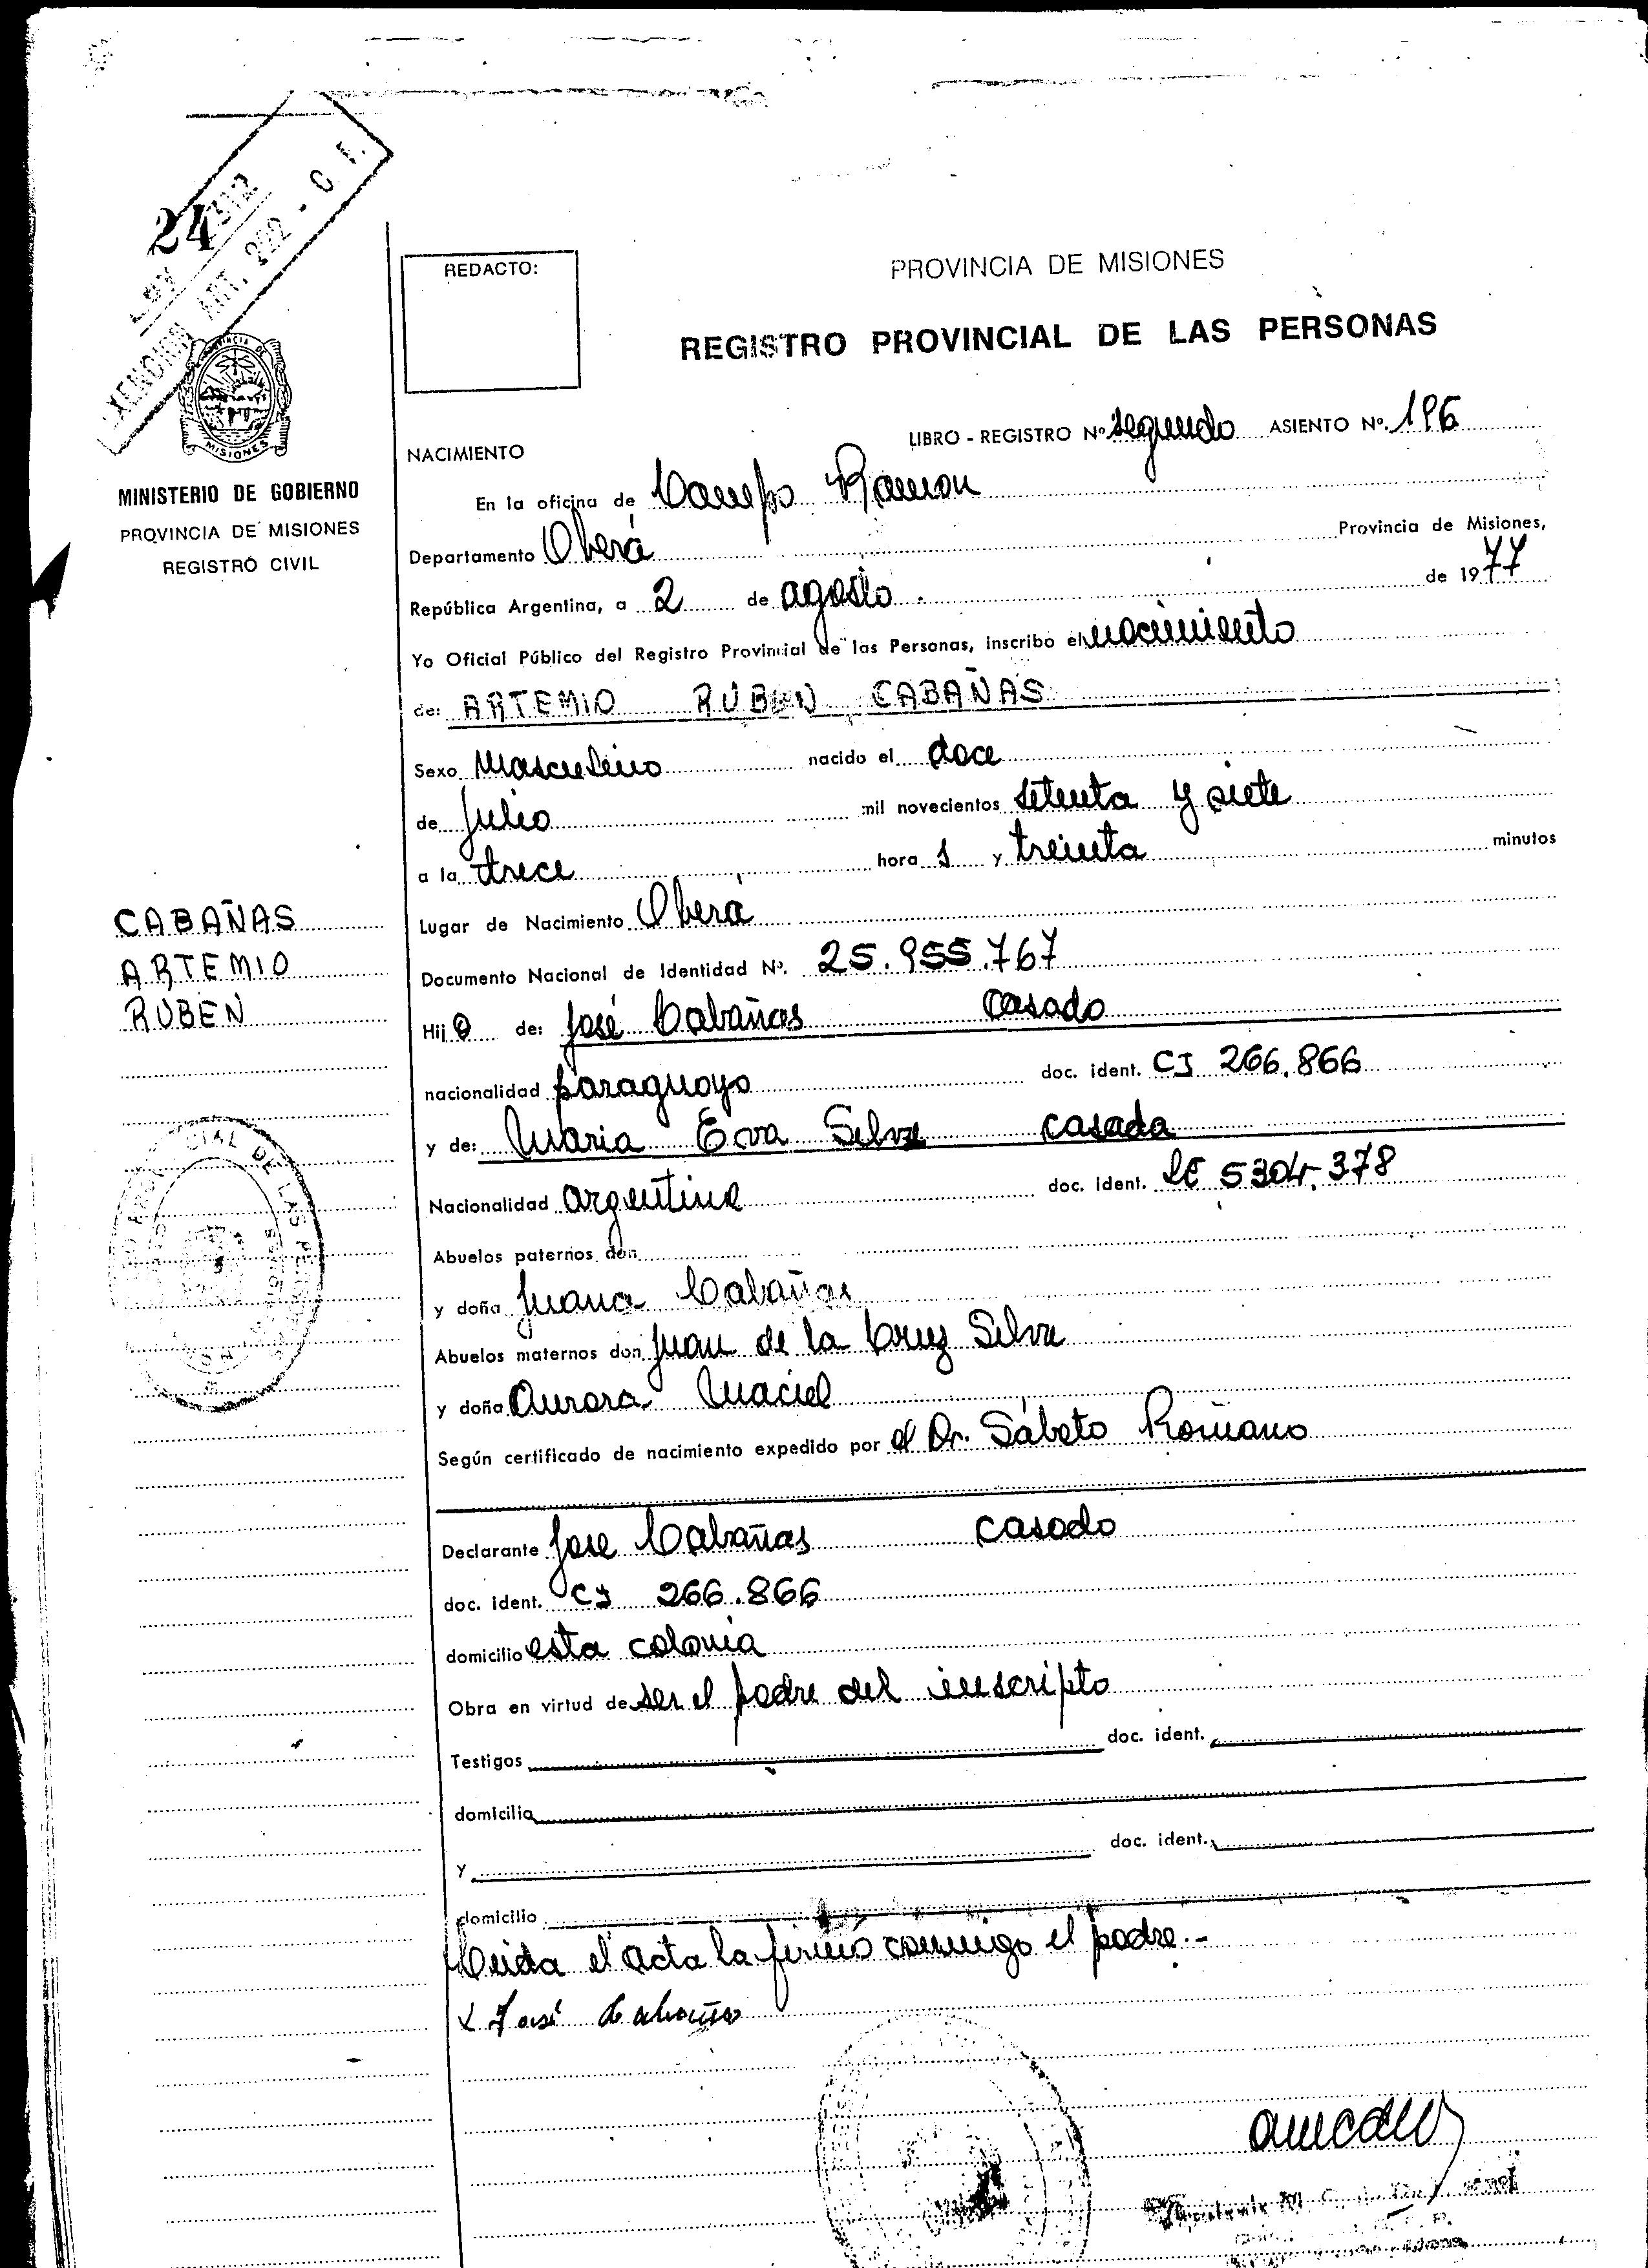 24
LEY 2312
EXENCION ART. 222 - C. F.
MISIONES
MINISTERIO DE GOBIERNO
PROVINCIA DE MISIONES
REGISTRO CIVIL
REDACTO:
PROVINCIA DE MISIONES
REGISTRO PROVINCIAL DE LAS PERSONAS
LIBRO - REGISTRO Nº segundo ASIENTO Nº. 196
NACIMIENTO
En la oficina de Campo Ramon
Departamento Oberá Provincia de Misiones,
República Argentina, a 2 de agosto . de 1977
Yo Oficial Público del Registro Provincial de las Personas, inscribo el nacimiento
de: ARTEMIO RUBEN CABAÑAS
Sexo Masculino nacido el doce
de Julio mil novecientos setenta y siete
a la trece hora s y treinta minutos
Lugar de Nacimiento Oberá
CABAÑAS
ARTEMIO
RUBEN
Documento Nacional de Identidad Nº. 25.955.767
Hij o de: José Cabañas casado
nacionalidad paraguayo doc. ident. CI 266.866
y de: Maria Eva Silva casada
Nacionalidad argentina doc. ident. LC 5304.378
Abuelos paternos don
y doña Juana Cabañas
Abuelos maternos don Juan de la Cruz Silva
y doña Aurora Maciel
Según certificado de nacimiento expedido por el Dr. Sábato Romano
Declarante Jose Cabañas casado
doc. ident. CI 266.866
domicilio esta colonia
Obra en virtud de ser el padre del inscripto
Testigos doc. ident.
domicilio
y doc. ident.
domicilio
Leida el acta la firmó conmigo el padre.-
x José Cabañas